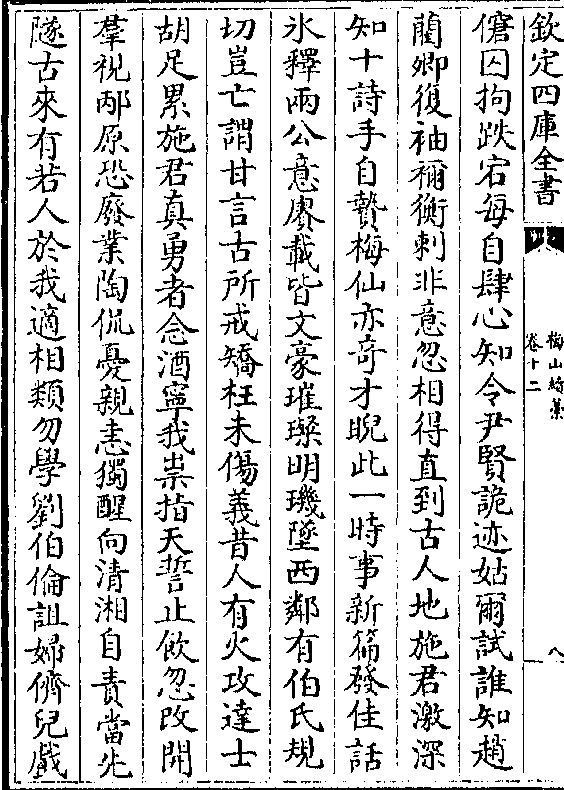 欽定四庫全書
梅山續藁
卷十二
八
傖囚拘跌宕每自肆心知令尹賢詭迹姑爾試誰知趙
藺卿復袖禰衡刺非意忽相得直到古人地施君激深
知十詩手自贄梅仙亦奇才睨此一時事新篇發佳話
氷釋兩公意賡載皆文豪璀璨明璣墜西鄰有伯氏規
切豈亡謂甘言古所戒矯枉未傷義昔人有火攻達士
胡足累施君真勇者念酒寧我祟指天誓止飲忽改開
羣視邴原恐廢業陶侃憂親恚獨醒向清湘自責當先
隧古來有若人於我適相類勿學劉伯倫詛婦儕兒戲